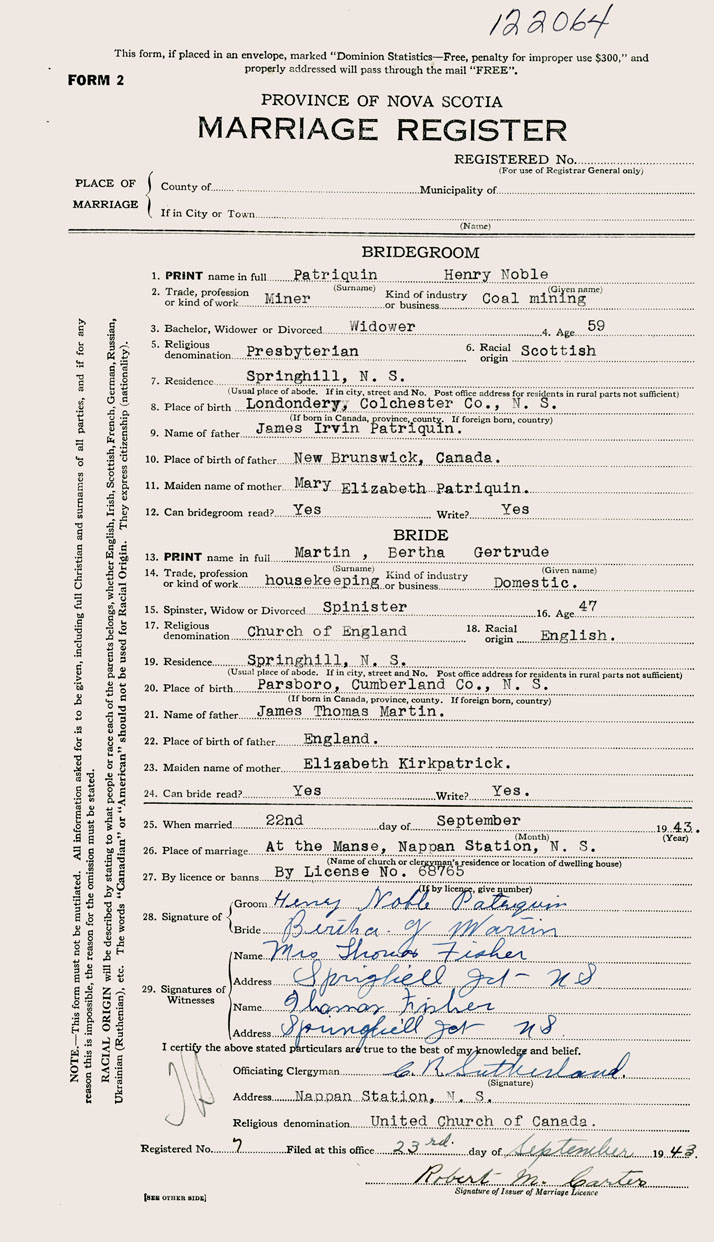 122064
This form, if placed in an envelope, marked "Dominion Statistics—Free, penalty for improper use $300," and
properly addressed will pass through the mail "FREE".
FORM 2
PROVINCE OF NOVA SCOTIA
MARRIAGE REGISTER
REGISTERED No.
(For use of Registrar General only)
PLACE OF MARRIAGE
County of Municipality of
If in City or Town
(Name)
BRIDEGROOM
1. PRINT name in full Patriquin Henry Noble
(Surname) (Given name)
2. Trade, profession or kind of work Miner Kind of industry or business Coal mining
3. Bachelor, Widower or Divorced Widower 4. Age 59
5. Religious denomination Presbyterian 6. Racial origin Scottish
7. Residence Springhill, N. S.
(Usual place of abode. If in city, street and No. Post office address for residents in rural parts not sufficient)
8. Place of birth Londondery, Colchester Co., N. S.
(If born in Canada, province, county. If foreign born, country)
9. Name of father James Irvin Patriquin.
10. Place of birth of father New Brunswick, Canada.
11. Maiden name of mother Mary Elizabeth Patriquin.
12. Can bridegroom read? Yes Write? Yes
BRIDE
13. PRINT name in full Martin , Bertha Gertrude
(Surname) (Given name)
14. Trade, profession or kind of work housekeeping Kind of industry or business Domestic.
15. Spinster, Widow or Divorced Spinister 16. Age 47
17. Religious denomination Church of England 18. Racial origin English.
19. Residence Springhill, N. S.
(Usual place of abode. If in city, street and No. Post office address for residents in rural parts not sufficient)
20. Place of birth Parsboro, Cumberland Co., N. S.
(If born in Canada, province, county. If foreign born, country)
21. Name of father James Thomas Martin.
22. Place of birth of father England.
23. Maiden name of mother Elizabeth Kirkpatrick.
24. Can bride read? Yes Write? Yes.
25. When married 22nd day of September 1943.
(Month) (Year)
26. Place of marriage At the Manse, Nappan Station, N. S.
(Name of church or clergyman's residence or location of dwelling house)
27. By licence or banns By License No. 68765
(If by licence, give number)
28. Signature of
Groom Henry Noble Patriquin
Bride Bertha G Martin
29. Signatures of Witnesses
Name Mrs Thomas Fisher
Address Springhill Jct - N S
Name Thomas Fisher
Address Springhill Jct N S.
I certify the above stated particulars are true to the best of my knowledge and belief.
Officiating Clergyman C. R. Sutherland.
(Signature)
Address Nappan Station, N. S.
Religious denomination United Church of Canada.
Registered No. 7 Filed at this office 23rd. day of September 1943.
Robert M. Carter
Signature of Issuer of Marriage Licence
[SEE OTHER SIDE]
NOTE.—This form must not be mutilated. All information asked for is to be given, including full Christian and surnames of all parties, and if for any
reason this is impossible, the reason for the omission must be stated.
RACIAL ORIGIN will be described by stating to what people or race each of the parents belongs, whether English, Irish, Scottish, French, German, Russian,
Ukrainian (Ruthenian), etc. The words "Canadian" or "American" should not be used for Racial Origin. They express citizenship (nationality).